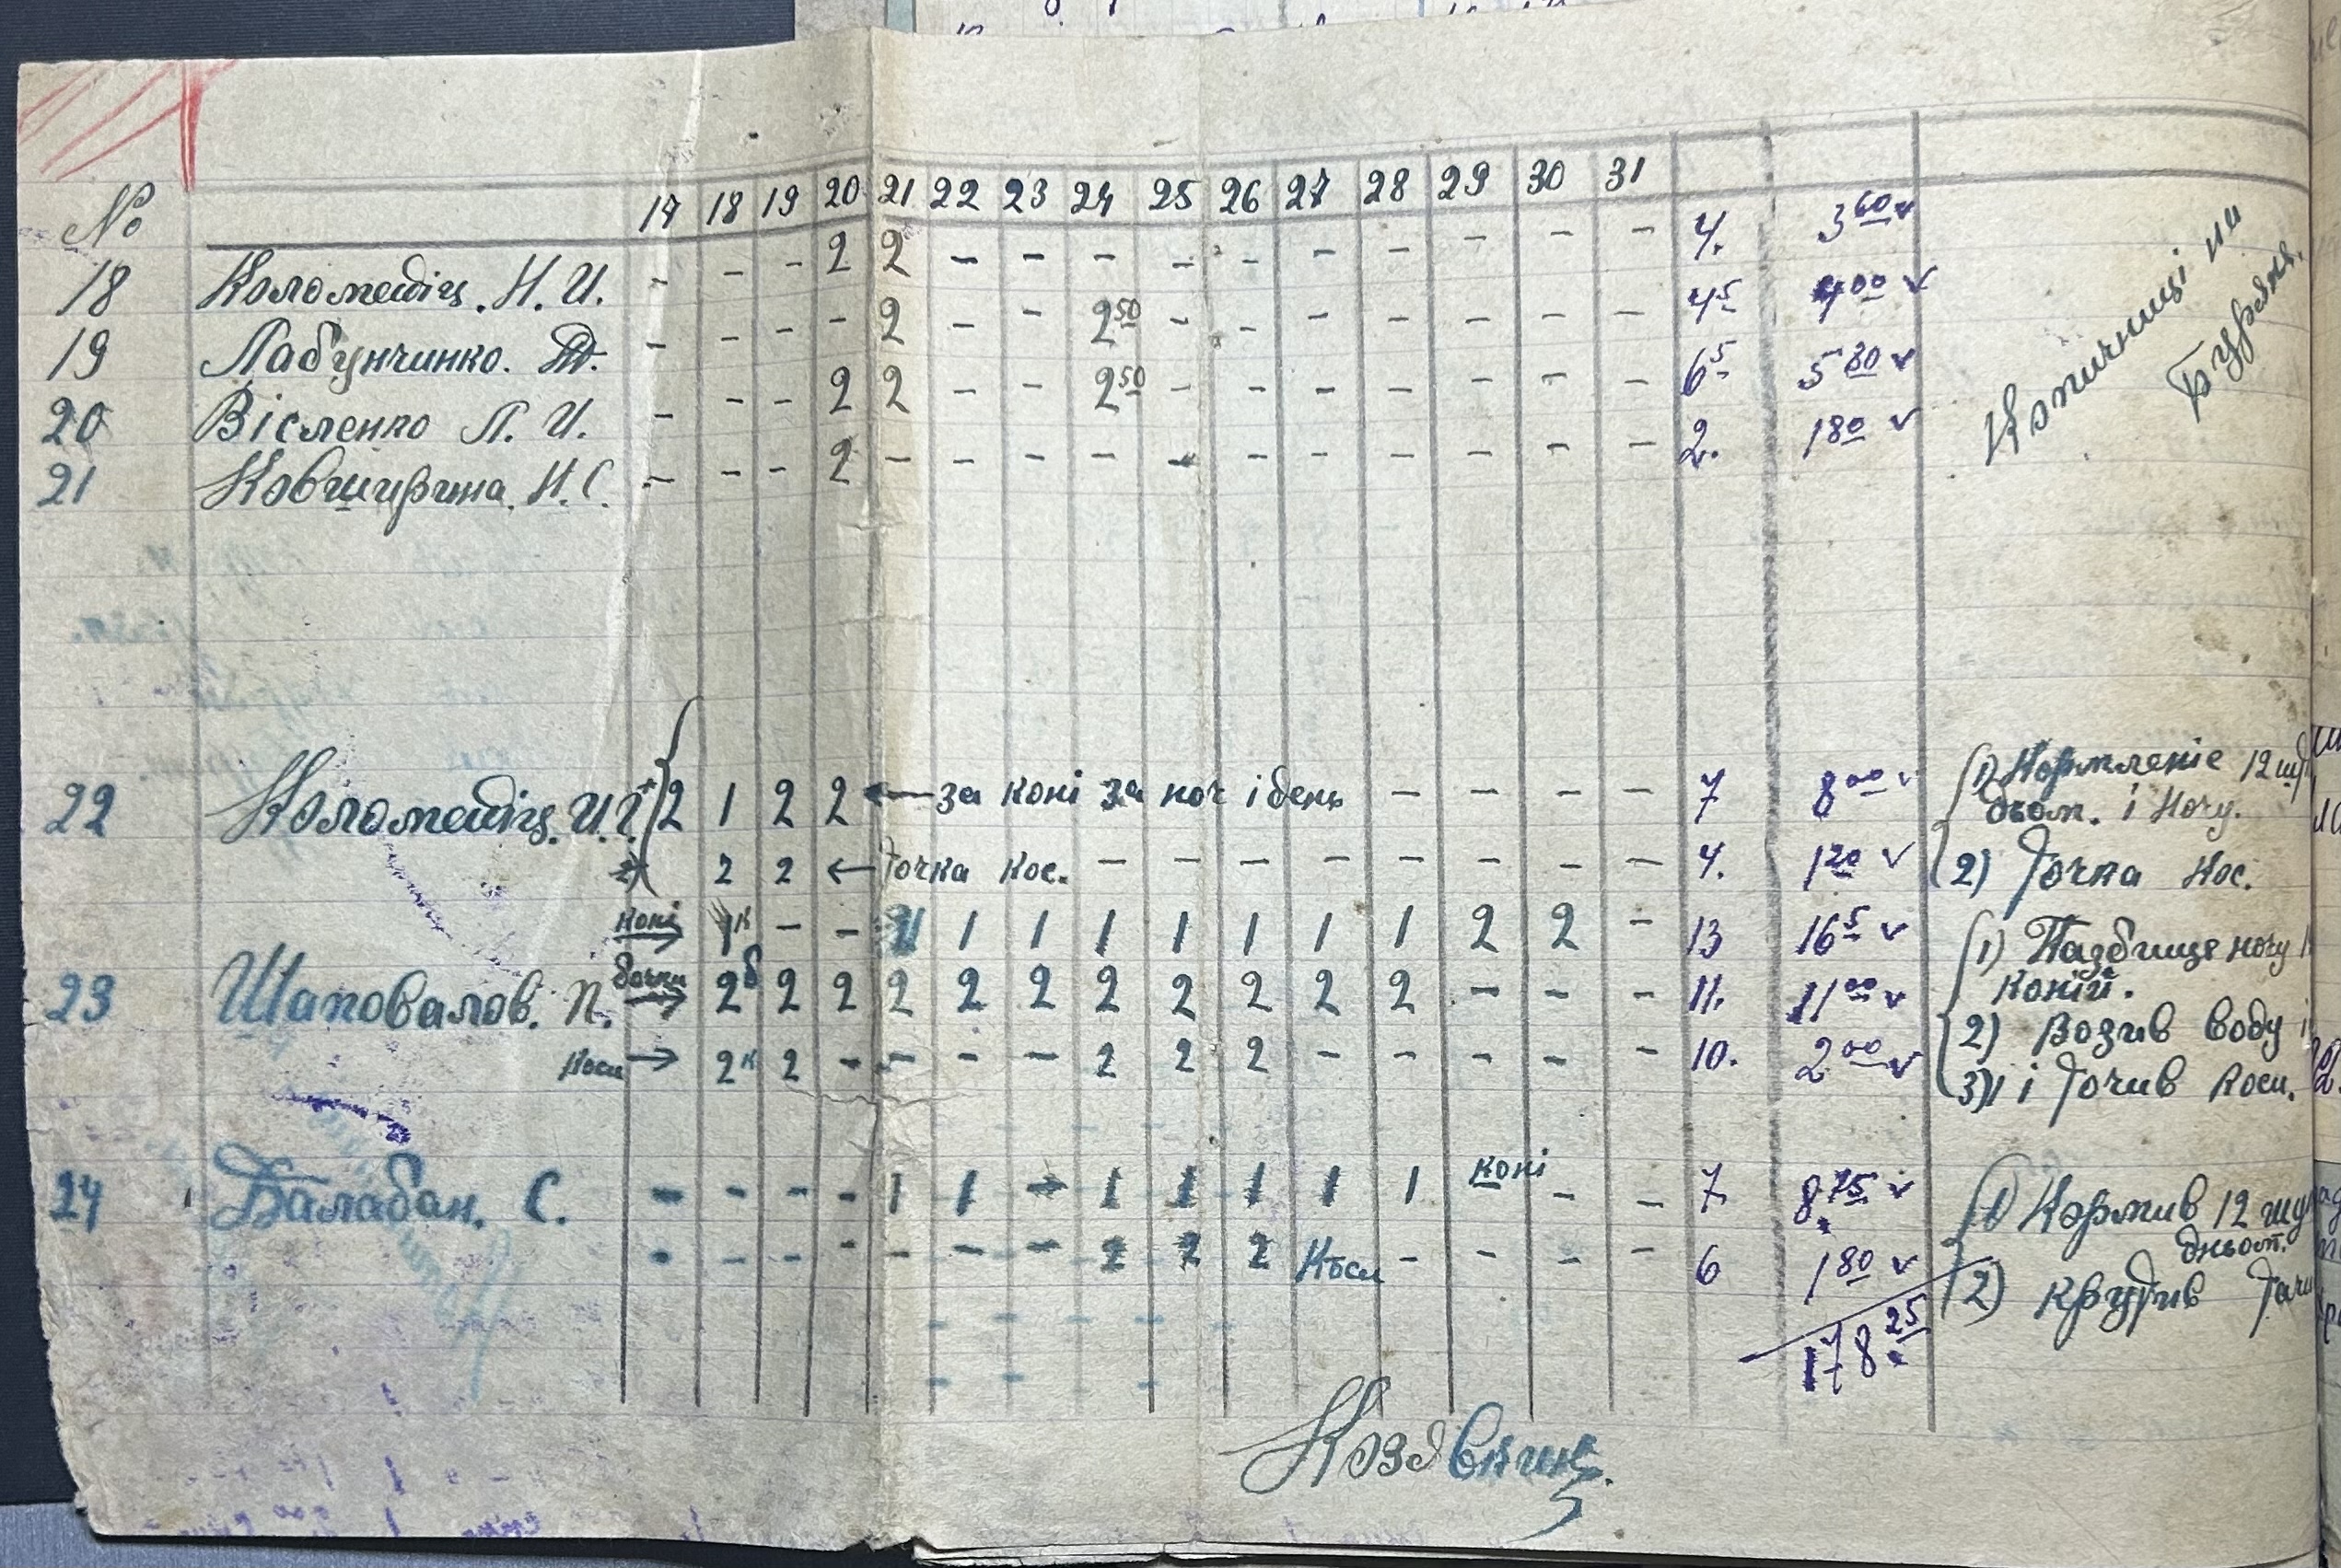 № 17 18 19 20 21 22 23 24 25 26 27 28 29 30 31
18 Коломейіц. Н. И. - - - 2 2 - - - - - - - - - - 4. 3 60 v
19 Лабунчинко. - - - - 2 - - 2 50 - - - - - - - 4 5 4 00 v
20 Вісленко Л. И. - - - 2 2 - - 2 50 - - - - - - - 6 5 5 80 v
21 Ковширина. Н. С. - - - 2 - - - - - - - - - - - 2. 1 80 v
Копичниці на
Буряки.
22 Коломейіц. И. 2 1 2 2 ← за коні за ноч і день - - - - 7 8 00 v
1) Кормленіе 12 шт
дьом. і ночу.
2 2 ← Точка кос. - - - - - - - - 4. 1 20 v 2) Точка кос.
коні → 1к - - 1 1 1 1 1 1 1 1 2 2 - 13 16 5 v 1) Пазбище ночу
коній.
23 Шаповалов. П. бочки → 2б 2 2 2 2 2 2 2 2 2 2 - - - 11. 11 00 v
2) Возив воду
коси → 2к 2 - - - - 2 2 2 - - - - - 10. 2 00 v 3) і Точив коси.
24 Балабан. С. - - - - 1 1 - 1 1 1 1 1 коні - - 7 8 75 v 1) Кормив 12 шту
дньом.
- - - - - - - 2 2 2 Коси - - - - 6 1 80 v 2) Крутив Точи
178 25